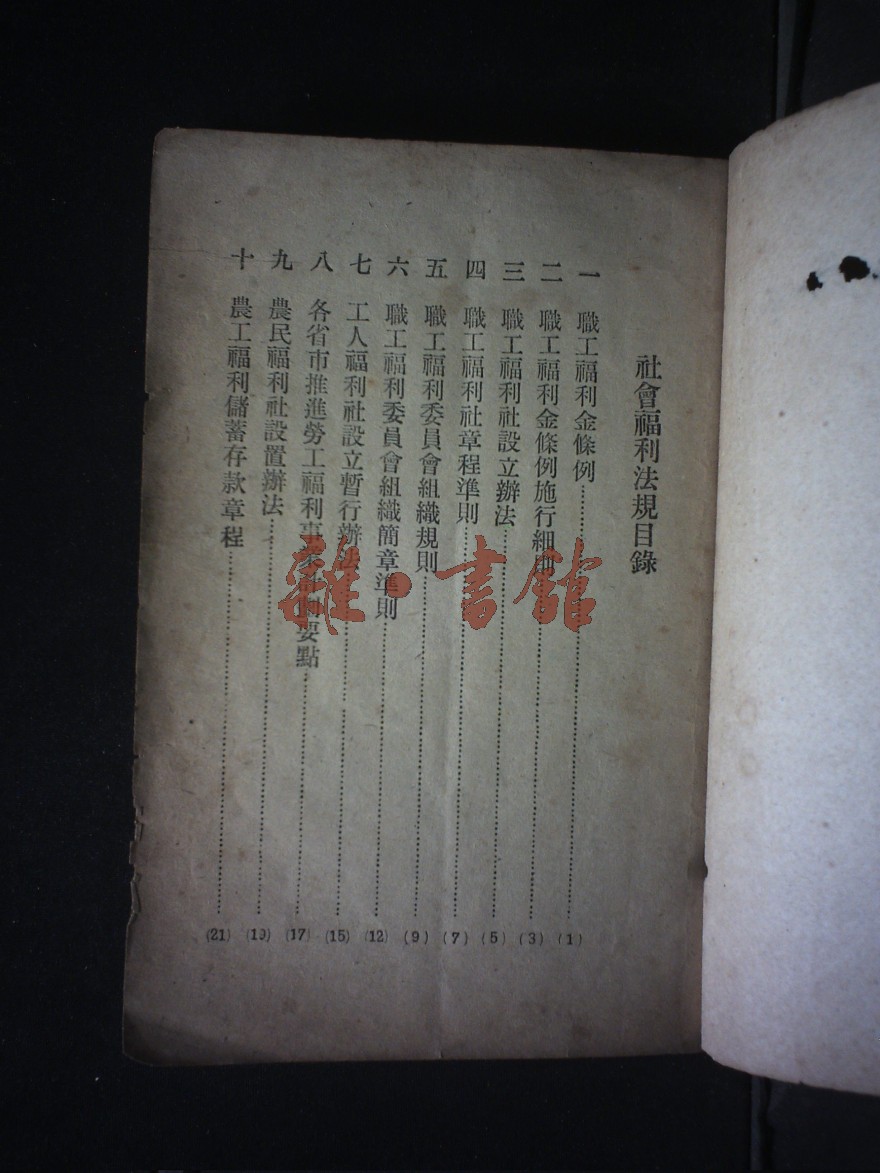 社會福利法規目錄
一 職工福利金條例………(1)
二 職工福利金條例施行細則………(3)
三 職工福利社設立辦法………(5)
四 職工福利社章程準則………(7)
五 職工福利委員會組織規則………(9)
六 職工福利委員會組織簡章準則………(12)
七 工人福利社設立暫行辦法………(15)
八 各省市推進勞工福利事業計劃要點………(17)
九 農民福利社設置辦法………(19)
十 農工福利儲蓄存款章程………(21)
雜·書館